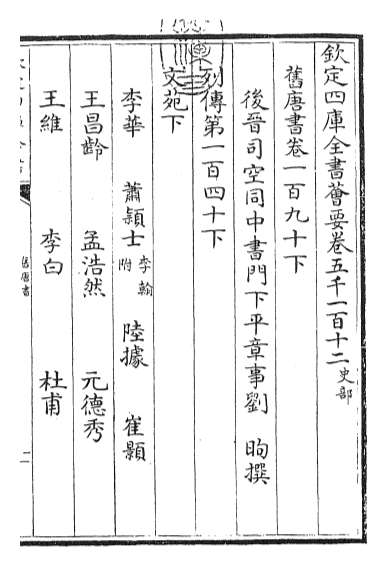 欽定四庫全書薈要卷五千一百十二 史部
舊唐書卷一百九十下
後晉司空同中書門下平章事劉 昫撰
列傳第一百四十下
文苑下
李華 蕭穎士 李翰附 陸據 崔顥
王昌齡 孟浩然 元德秀
王維 李白 杜甫
舊唐書